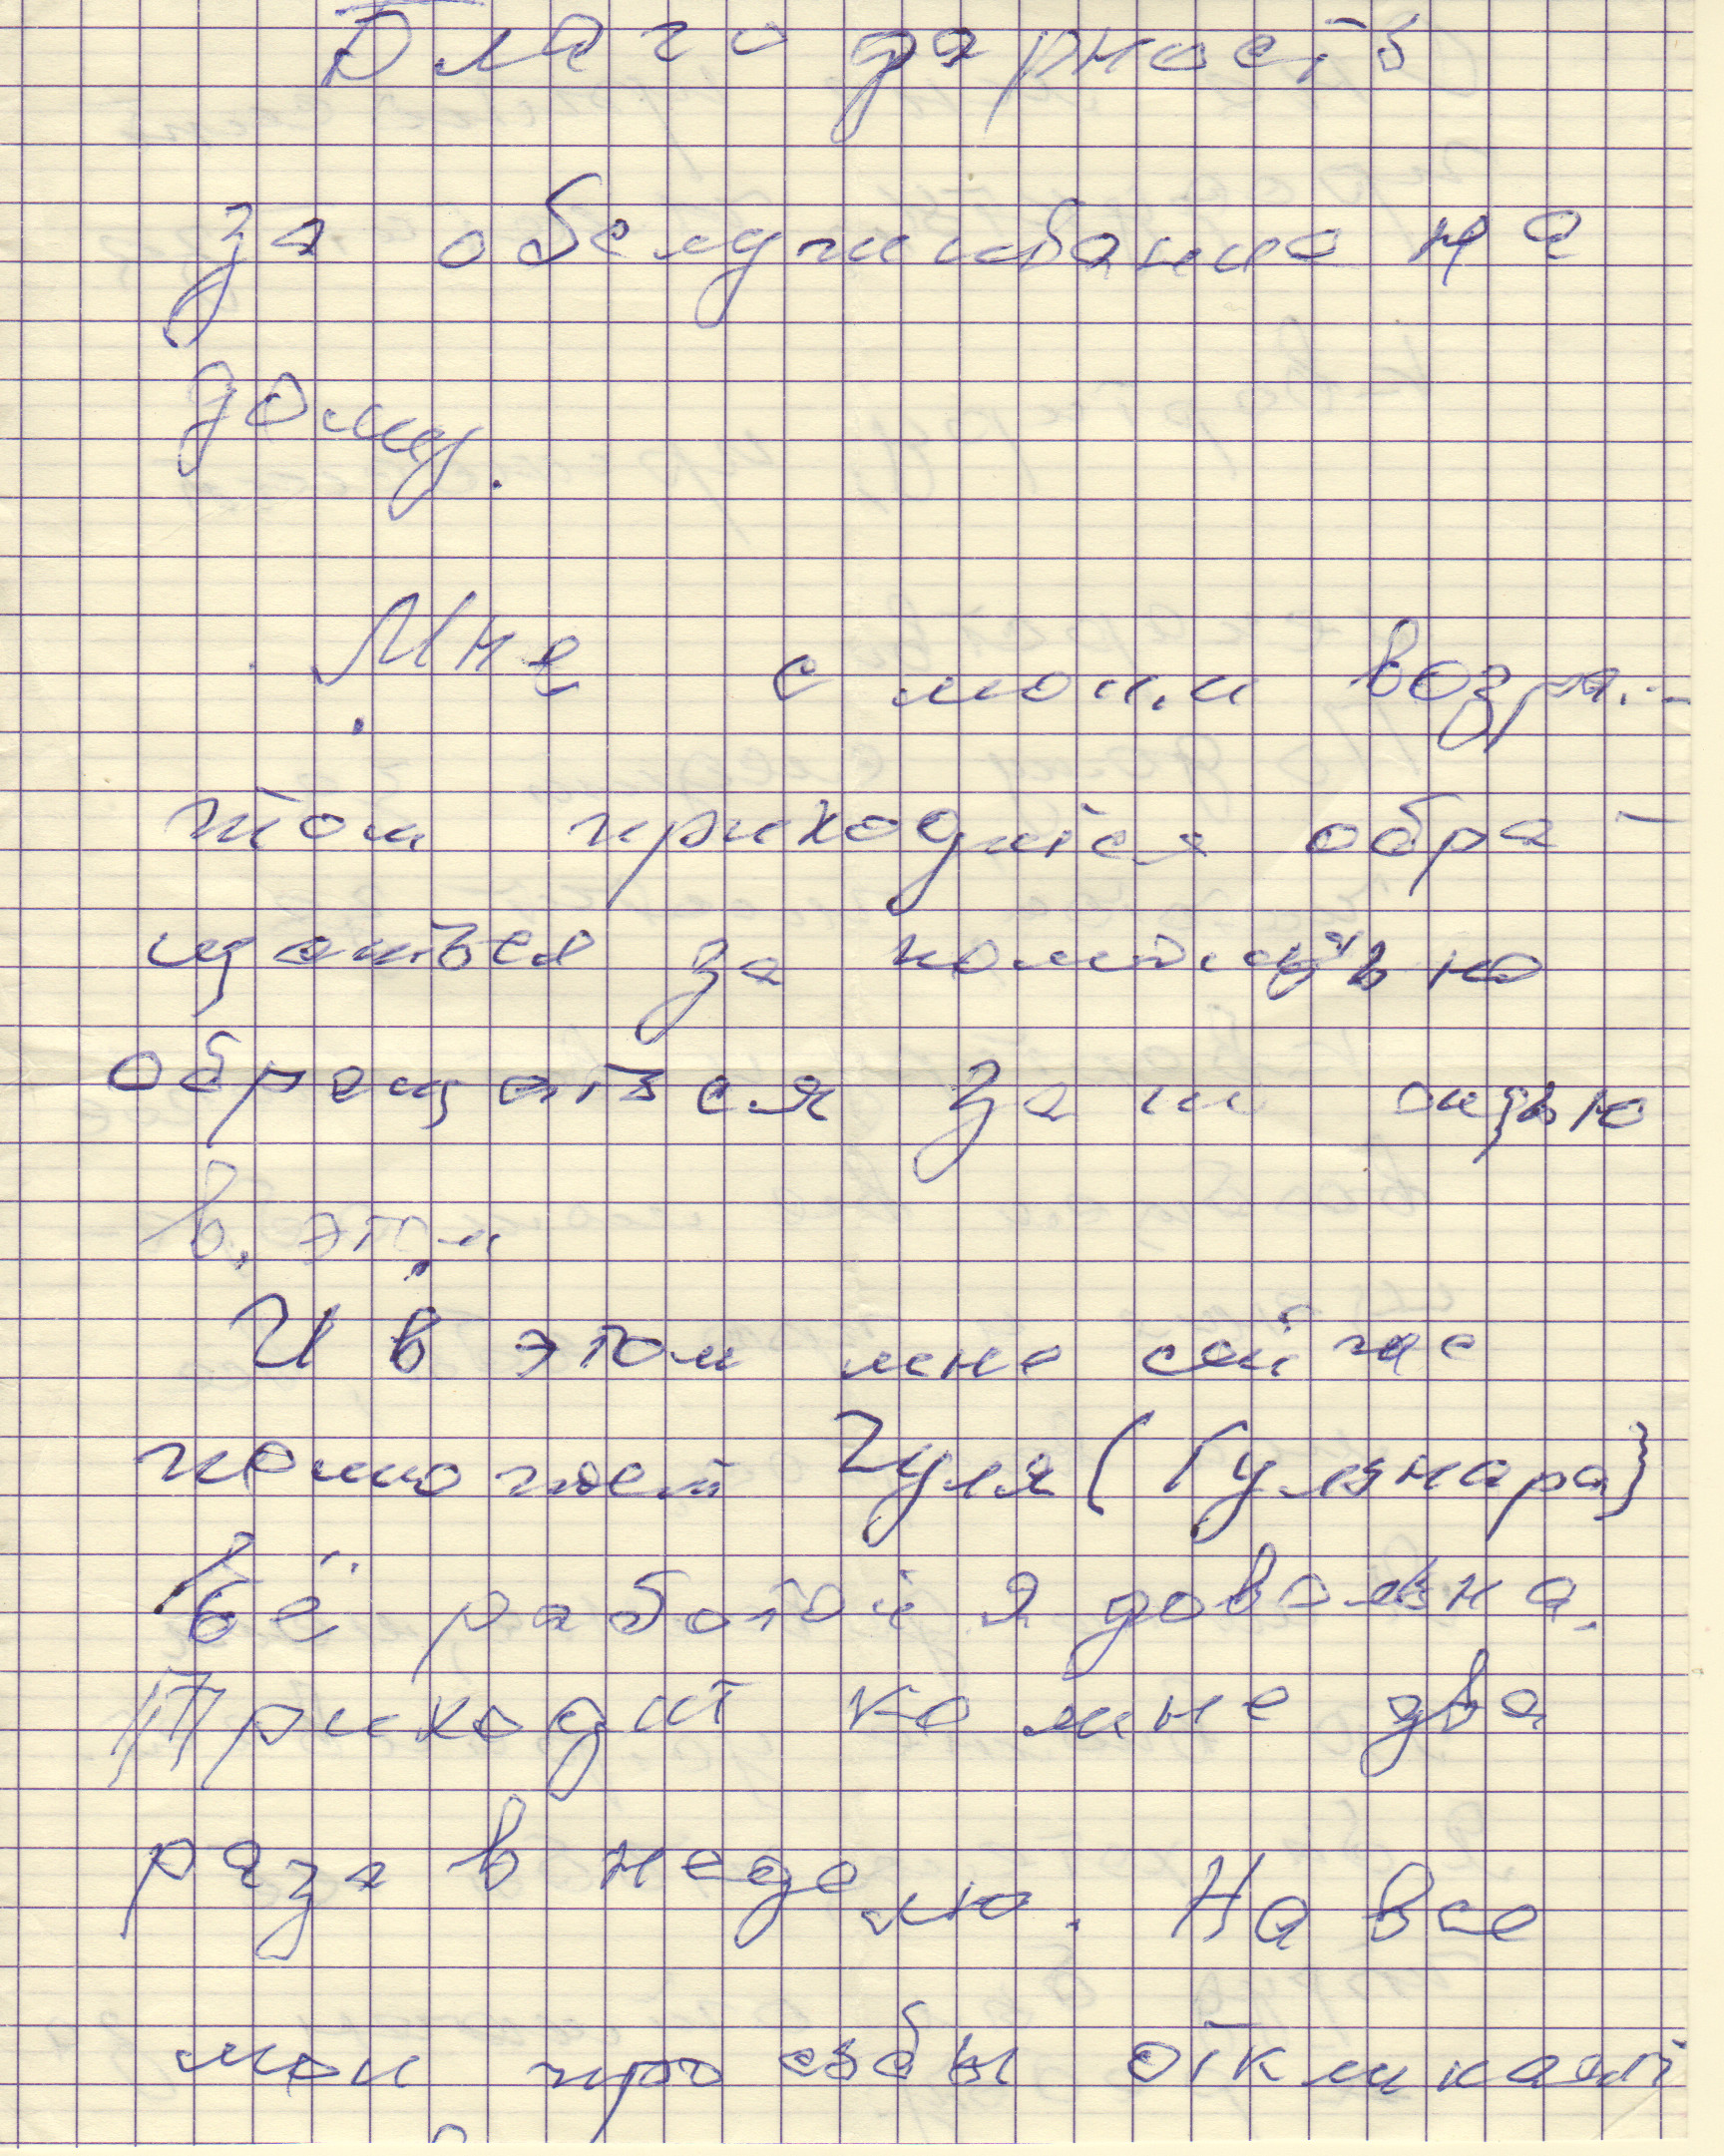 Благодарность
за обслуживание на
дому.
Мне с моим возра-
том приходится обра-
щаться за помощью
обращаться за
в этом
И в этом мне сейчас
поможет Гуля (Гульнара)
Её работой я довольна.
Приходит ко мне два
раза в неделю. На все
мои просьбы откликает